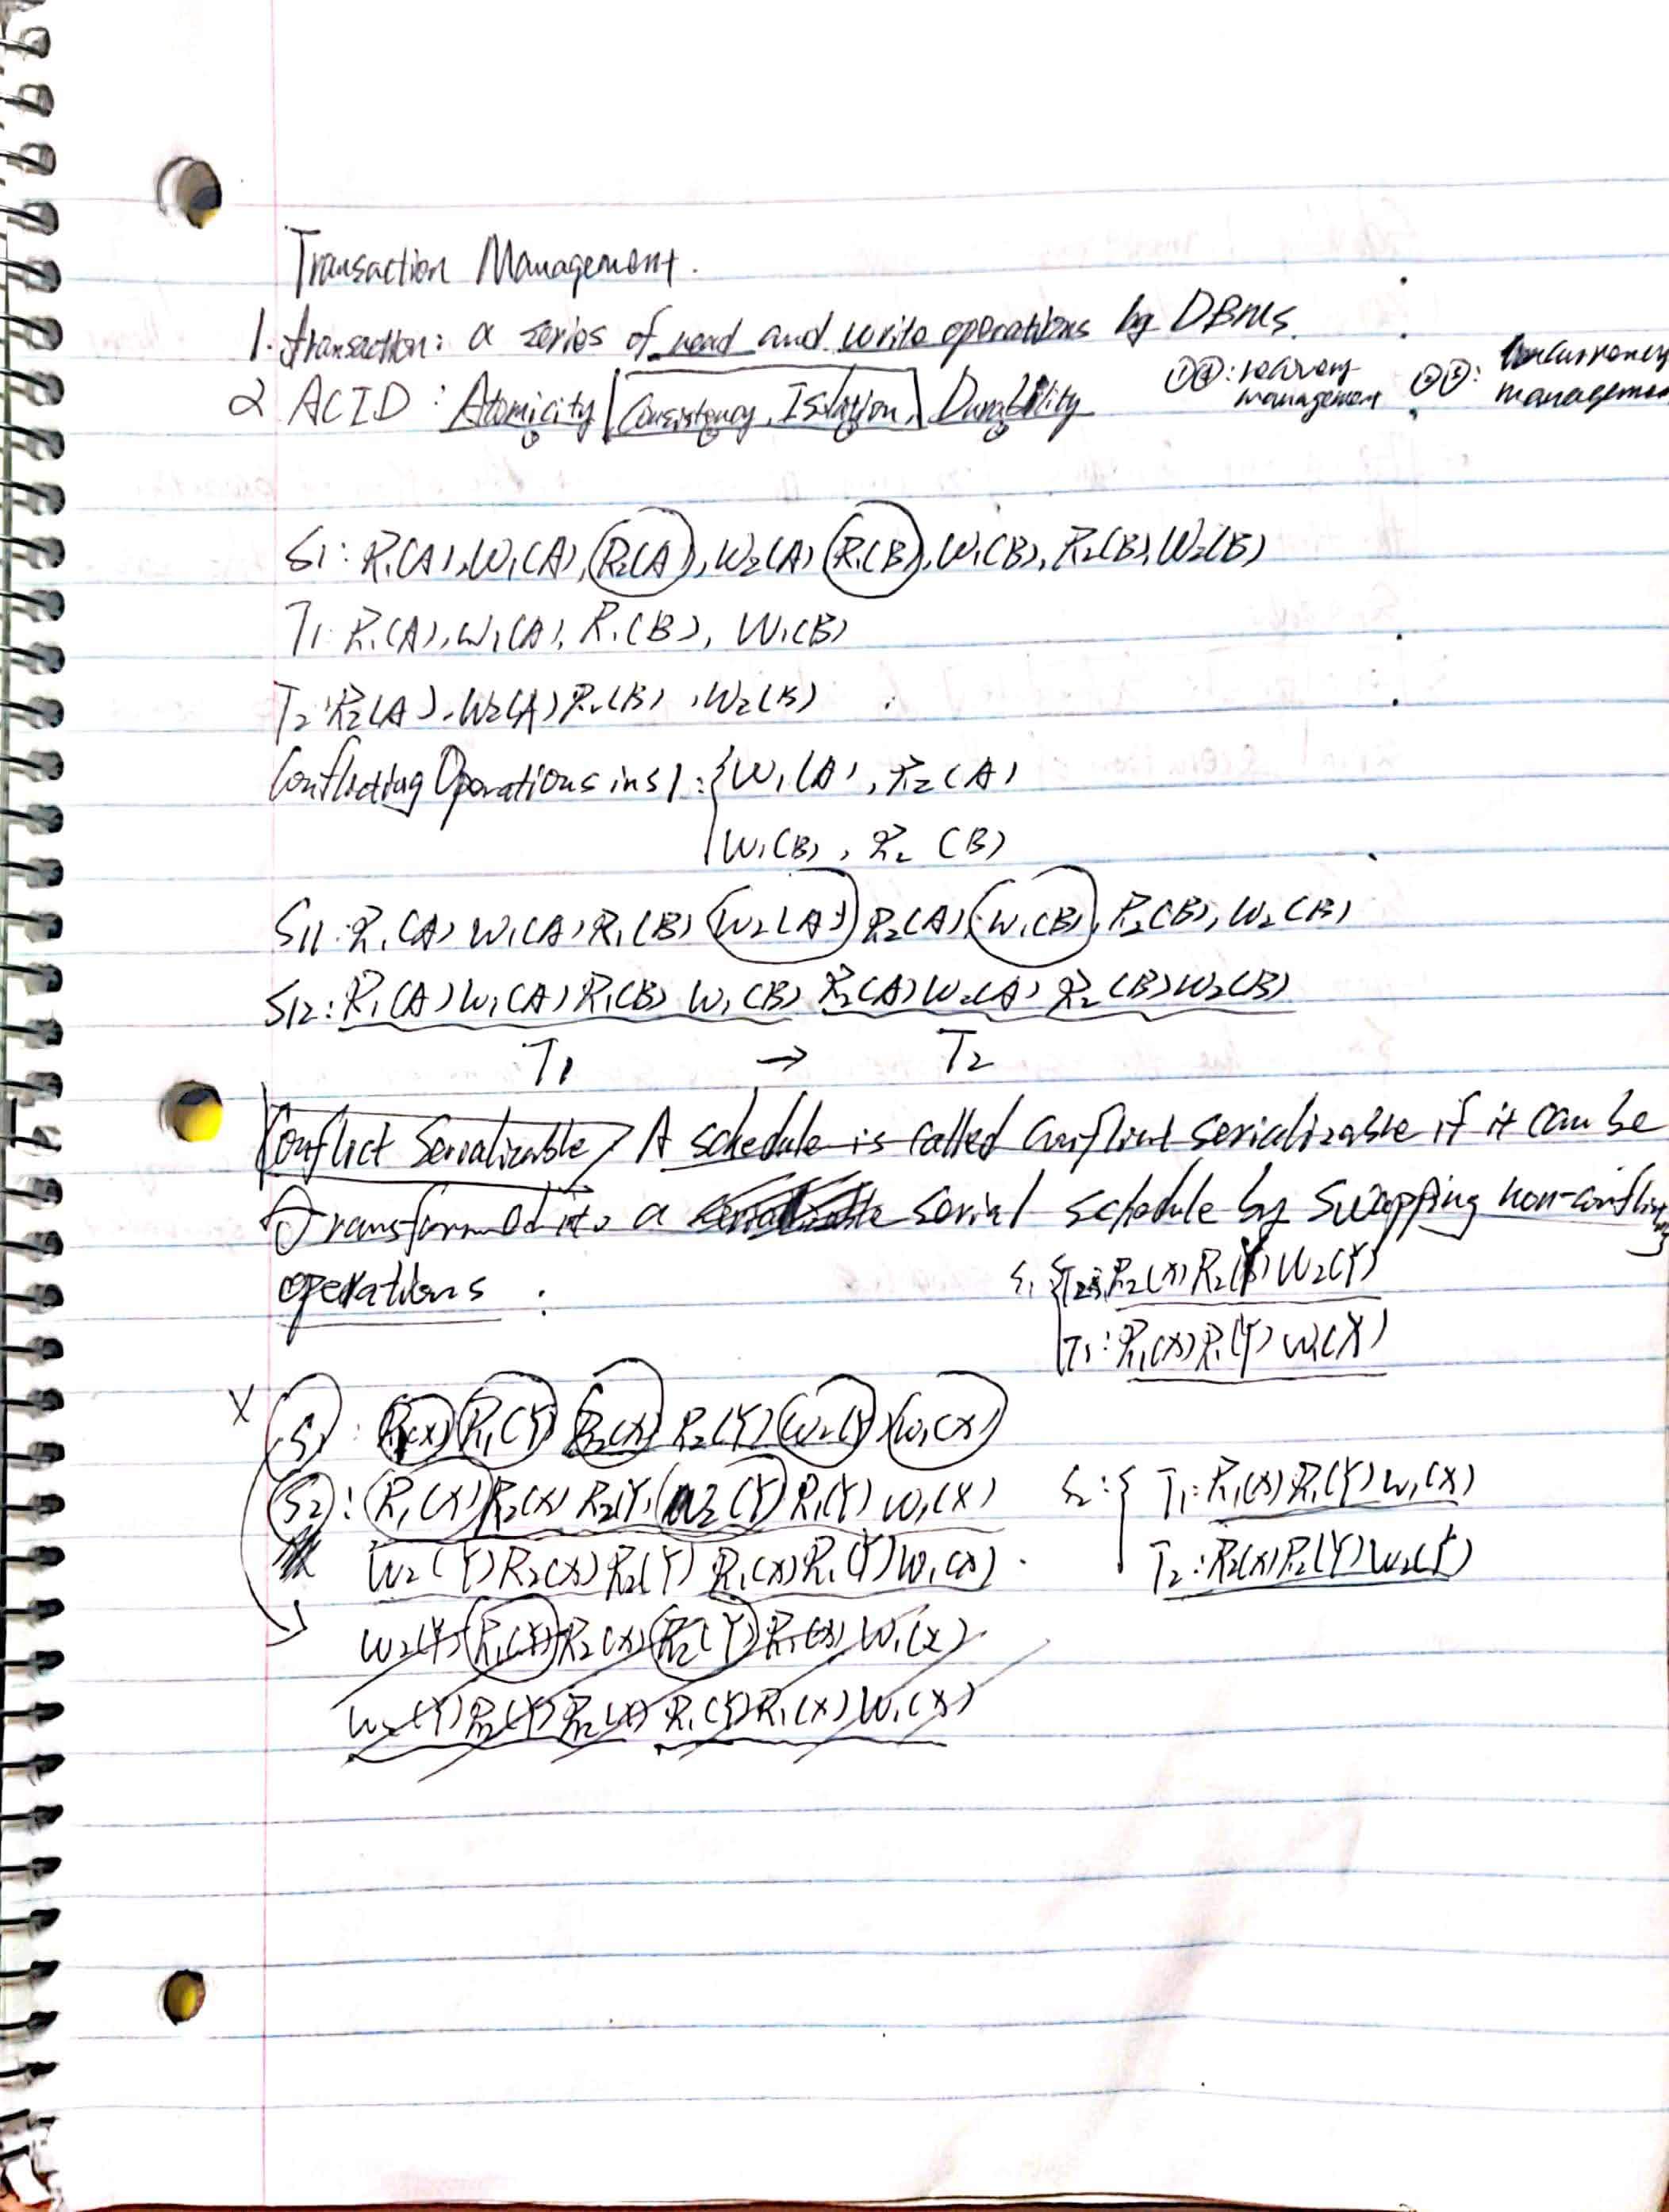 Transaction Management.
1. transaction: a series of read and write operations by DBMS.
2 ACID : Atomicity Consistency, Isolation, Durability ①④: recovery management ②③: concurrency management
S1: R1(A), W1(A), R2(A), W2(A) R1(B), W1(B), R2(B), W2(B)
T1: R1(A), W1(A), R1(B), W1(B)
T2: R2(A), W2(A) R2(B), W2(B)
Conflicting Operations in S1: { W1(A), R2(A)
W1(B), R2 (B)
S11: R1(A) W1(A) R1(B) W2(A) R2(A), W1(B), R2(B), W2(B)
S12: R1(A) W1(A) R1(B) W1(B) R2(A) W2(A) R2(B) W2(B)
T1 → T2
Conflict Serializable A schedule is called conflict serializable if it can be
transformed into a serial schedule by swapping non-conflicting
operations :
S1 { T2: R2(X) R2(Y) W2(Y)
T1: R1(X) R1(Y) W1(X)
X S1: R1(X) R1(Y) R2(X) R2(Y) W2(Y) W1(X)
S2: R1(X) R2(X) R2(Y) W2(Y) R1(Y) W1(X) S2: { T1: R1(X) R1(Y) W1(X)
W2(Y) R2(X) R2(Y) R1(X) R1(Y) W1(X) . T2: R2(X) R2(Y) W2(Y)
W2(Y) R1(X) R2(X) R2(Y) R1(X) W1(X)
W2(Y) R2(Y) R2(X) R1(Y) R1(X) W1(X)